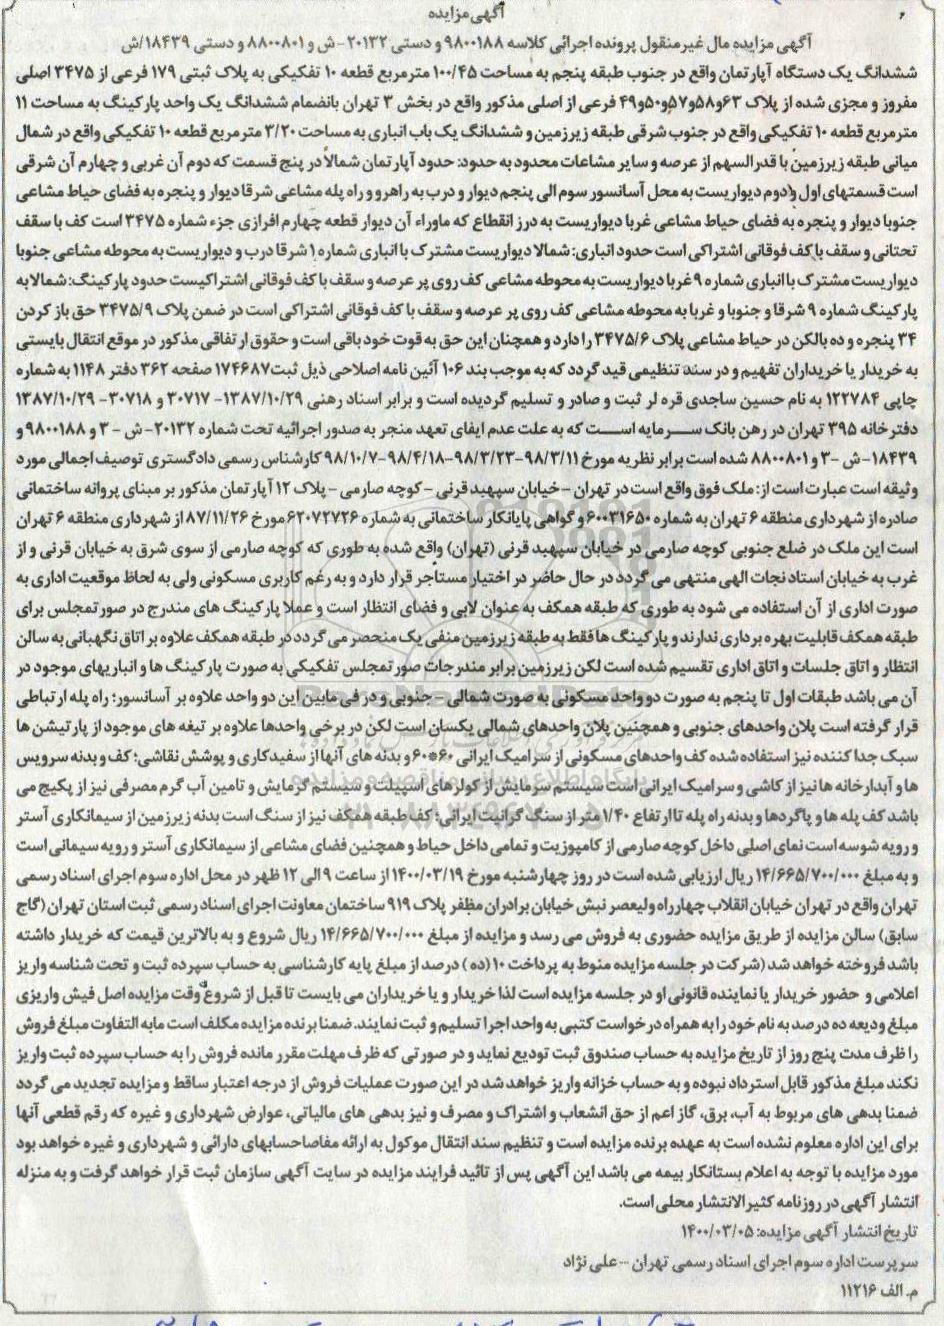 ۶
آگهی مزایده
آگهی مزایده مال غیرمنقول پرونده اجرائی کلاسه ۹۸۰۰۱۸۸ و دستی ۲۰۱۳۲-ش و ۸۸۰۰۸۰۱ و دستی ۱۸۴۳۹/ش
ششدانگ یک دستگاه آپارتمان واقع در جنوب طبقه پنجم به مساحت ۱۰۰/۴۵ مترمربع قطعه ۱۰ تفکیکی به پلاک ثبتی ۱۷۹ فرعی از ۳۴۷۵ اصلی
مفروز و مجزی شده از پلاک ۶۳و۵۸و۵۷و۵۰و۴۹ فرعی از اصلی مذکور واقع در بخش ۳ تهران بانضمام ششدانگ یک واحد پارکینگ به مساحت ۱۱
مترمربع قطعه ۱۰ تفکیکی واقع در جنوب شرقی طبقه زیرزمین و ششدانگ یک باب انباری به مساحت ۳/۲۰ مترمربع قطعه ۱۰ تفکیکی واقع در شمال
میانی طبقه زیرزمین با قدرالسهم از عرصه و سایر مشاعات محدود به حدود: حدود آپارتمان شمالاً در پنج قسمت که دوم آن غربی و چهارم آن شرقی
است قسمتهای اول و دوم دیواریست به محل آسانسور سوم الی پنجم دیوار و درب به راهرو و راه پله مشاعی شرقا دیوار و پنجره به فضای حیاط مشاعی
جنوبا دیوار و پنجره به فضای حیاط مشاعی غربا دیواریست به درز انقطاع که ماوراء آن دیوار قطعه چهارم افرازی جزء شماره ۳۴۷۵ است کف با سقف
تحتانی و سقف با کف فوقانی اشتراکی است حدود انباری: شمالا دیواریست مشترک با انباری شماره ۱ شرقا درب و دیواریست به محوطه مشاعی جنوبا
دیواریست مشترک با انباری شماره ۹ غربا دیواریست به محوطه مشاعی کف روی پر عرصه و سقف با کف فوقانی اشتراکیست حدود پارکینگ: شمالا به
پارکینگ شماره ۹ شرقا و جنوبا و غربا به محوطه مشاعی کف روی پر عرصه و سقف با کف فوقانی اشتراکی است در ضمن پلاک ۳۴۷۵/۹ حق باز کردن
۳۴ پنجره و ده بالکن در حیاط مشاعی پلاک ۳۴۷۵/۶ را دارد و همچنان این حق به قوت خود باقی است و حقوق ارتفاقی مذکور در موقع انتقال بایستی
به خریدار یا خریداران تفهیم و در سند تنظیمی قید گردد که به موجب بند ۱۰۶ آئین نامه اصلاحی ذیل ثبت ۱۷۴۶۸۷ صفحه ۳۶۲ دفتر ۱۱۴۸ به شماره
چاپی ۱۲۲۷۸۴ به نام حسین ساجدی قره لر ثبت و صادر و تسلیم گردیده است و برابر اسناد رهنی ۱۳۸۷/۱۰/۲۹- ۳۰۷۱۷ و ۳۰۷۱۸- ۱۳۸۷/۱۰/۲۹
دفترخانه ۳۹۵ تهران در رهن بانک سرمایه است که به علت عدم ایفای تعهد منجر به صدور اجرائیه تحت شماره ۲۰۱۳۲-ش - ۳ و ۹۸۰۰۱۸۸ و
۱۸۴۳۹-ش -۳ و ۸۸۰۰۸۰۱ شده است برابر نظریه مورخ ۹۸/۳/۱۱-۹۸/۳/۲۳-۹۸/۴/۱۸-۹۸/۱۰/۷ کارشناس رسمی دادگستری توصیف اجمالی مورد
وثیقه است عبارت است از: ملک فوق واقع است در تهران - خیابان سپهبد قرنی - کوچه صارمی - پلاک ۱۲ آپارتمان مذکور بر مبنای پروانه ساختمانی
صادره از شهرداری منطقه ۶ تهران به شماره ۶۰۰۳۱۶۵۰ و گواهی پایانکار ساختمانی به شماره ۶۲۰۷۲۷۲۶ مورخ ۸۷/۱۱/۲۶ از شهرداری منطقه ۶ تهران
است این ملک در ضلع جنوبی کوچه صارمی در خیابان سپهبد قرنی (تهران) واقع شده به طوری که کوچه صارمی از سوی شرق به خیابان قرنی و از
غرب به خیابان استاد نجات الهی منتهی می گردد در حال حاضر در اختیار مستاجر قرار دارد و به رغم کاربری مسکونی ولی به لحاظ موقعیت اداری به
صورت اداری از آن استفاده می شود به طوری که طبقه همکف به عنوان لابی و فضای انتظار است و عملا پارکینگ های مندرج در صورتمجلس برای
طبقه همکف قابلیت بهره برداری ندارند و پارکینگ ها فقط به طبقه زیرزمین منفی یک منحصر می گردد در طبقه همکف علاوه بر اتاق نگهبانی به سالن
انتظار و اتاق جلسات و اتاق اداری تقسیم شده است لکن زیرزمین برابر مندرجات صورتمجلس تفکیکی به صورت پارکینگ ها و انباریهای موجود در
آن می باشد طبقات اول تا پنجم به صورت دو واحد مسکونی به صورت شمالی - جنوبی و در فی مابین این دو واحد علاوه بر آسانسور؛ راه پله ارتباطی
قرار گرفته است پلان واحدهای جنوبی و همچنین پلان واحدهای شمالی یکسان است لکن در برخی واحدها علاوه بر تیغه های موجود از پارتیشن ها
سبک جدا کننده نیز استفاده شده کف واحدهای مسکونی از سرامیک ایرانی ۶۰*۶۰ و بدنه های آنها از سفیدکاری و پوشش نقاشی؛ کف و بدنه سرویس
ها و آبدارخانه ها نیز از کاشی و سرامیک ایرانی است سیستم سرمایش از کولرهای اسپیلت و سیستم گرمایش و تامین آب گرم مصرفی نیز از پکیج می
باشد کف پله ها و پاگردها و بدنه راه پله تا ارتفاع ۱/۴۰ متر از سنگ گرانیت ایرانی؛ کف طبقه همکف نیز از سنگ است بدنه زیرزمین از سیمانکاری آستر
و رویه شوسه است نمای اصلی داخل کوچه صارمی از کامپوزیت و تمامی داخل حیاط و همچنین فضای مشاعی از سیمانکاری آستر و رویه سیمانی است
و به مبلغ ۱۴/۶۶۵/۷۰۰/۰۰۰ ریال ارزیابی شده است در روز چهارشنبه مورخ ۱۴۰۰/۰۳/۱۹ از ساعت ۹ الی ۱۲ ظهر در محل اداره سوم اجرای اسناد رسمی
تهران واقع در تهران خیابان انقلاب چهارراه ولیعصر نبش خیابان برادران مظفر پلاک ۹۱۹ ساختمان معاونت اجرای اسناد رسمی ثبت استان تهران (گاج
سابق) سالن مزایده از طریق مزایده حضوری به فروش می رسد و مزایده از مبلغ ۱۴/۶۶۵/۷۰۰/۰۰۰ ریال شروع و به بالاترین قیمت که خریدار داشته
باشد فروخته خواهد شد (شرکت در جلسه مزایده منوط به پرداخت ۱۰ (ده) درصد از مبلغ پایه کارشناسی به حساب سپرده ثبت و تحت شناسه واریز
اعلامی و حضور خریدار یا نماینده قانونی او در جلسه مزایده است لذا خریدار و یا خریداران می بایست تا قبل از شروع وقت مزایده اصل فیش واریزی
مبلغ ودیعه ده درصد به نام خود را به همراه درخواست کتبی به واحد اجرا تسلیم و ثبت نمایند. ضمنا برنده مزایده مکلف است مابه التفاوت مبلغ فروش
را ظرف مدت پنج روز از تاریخ مزایده به حساب صندوق ثبت تودیع نماید و در صورتی که ظرف مهلت مقرر مانده فروش را به حساب سپرده ثبت واریز
نکند مبلغ مذکور قابل استرداد نبوده و به حساب خزانه واریز خواهد شد در این صورت عملیات فروش از درجه اعتبار ساقط و مزایده تجدید می گردد
ضمنا بدهی های مربوط به آب، برق، گاز اعم از حق انشعاب و اشتراک و مصرف و نیز بدهی های مالیاتی، عوارض شهرداری و غیره که رقم قطعی آنها
برای این اداره معلوم نشده است به عهده برنده مزایده است و تنظیم سند انتقال موکول به ارائه مفاصاحسابهای دارائی و شهرداری و غیره خواهد بود
مورد مزایده با توجه به اعلام بستانکار بیمه می باشد این آگهی پس از تائید فرایند مزایده در سایت آگهی سازمان ثبت قرار خواهد گرفت و به منزله
انتشار آگهی در روزنامه کثیرالانتشار محلی است.
تاریخ انتشار آگهی مزایده: ۱۴۰۰/۰۳/۰۵
سرپرست اداره سوم اجرای اسناد رسمی تهران -علی نژاد
م.الف ۱۱۲۱۶